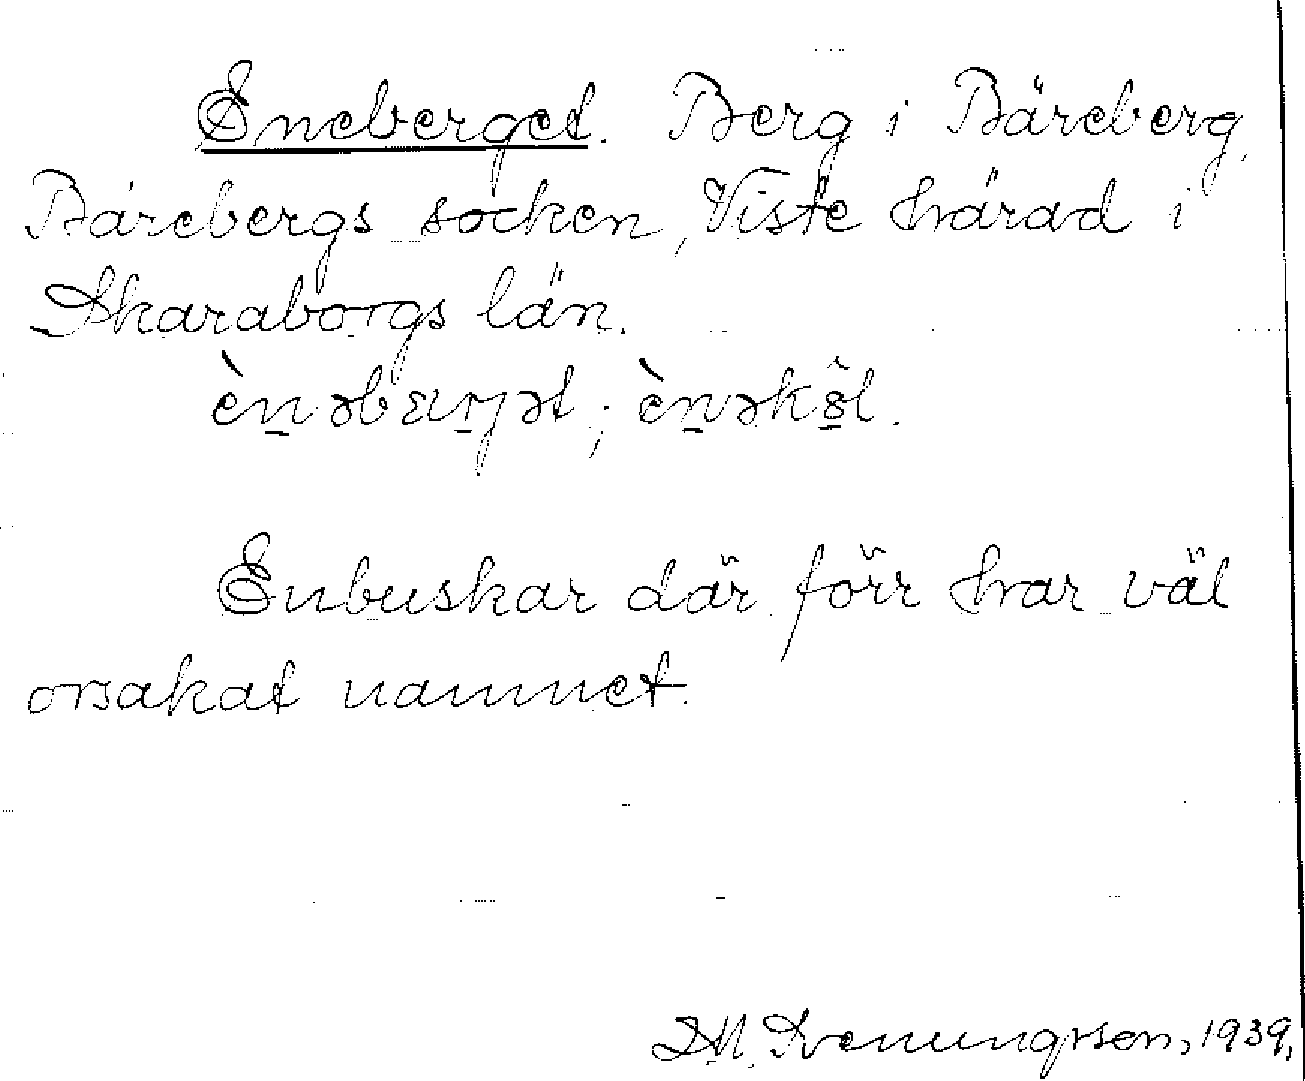 Eneberget. Berg i Bäreberg,
Bärebergs socken, Viste härad i
Skaraborgs län.
Enbuskar där förr har väl
orsakat namnet.
Svenungsson, 1939.